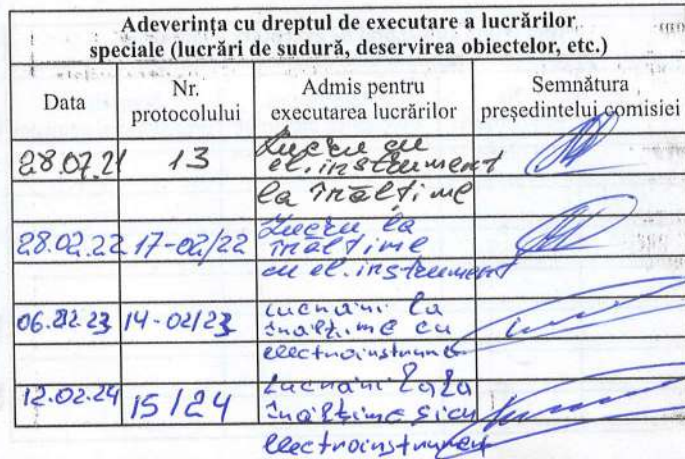 Adeverința cu dreptul de executare a lucrărilor
speciale (lucrări de sudură, deservirea obiectelor, etc.)
Data
Nr.
protocolului
Admis pentru
executarea lucrărilor
Semnătura
președintelui comisiei
28.07.21 13 Lucru cu
el. instrument
la înălțime
28.02.22 17-02/22 Lucru la
înălțime
cu el. instrument
06. 23 14-02/23 lucrări la
înălțime cu
electroinstrum.
12.02.24 15/24 Lucrări la
înălțime și cu
electroinstrument